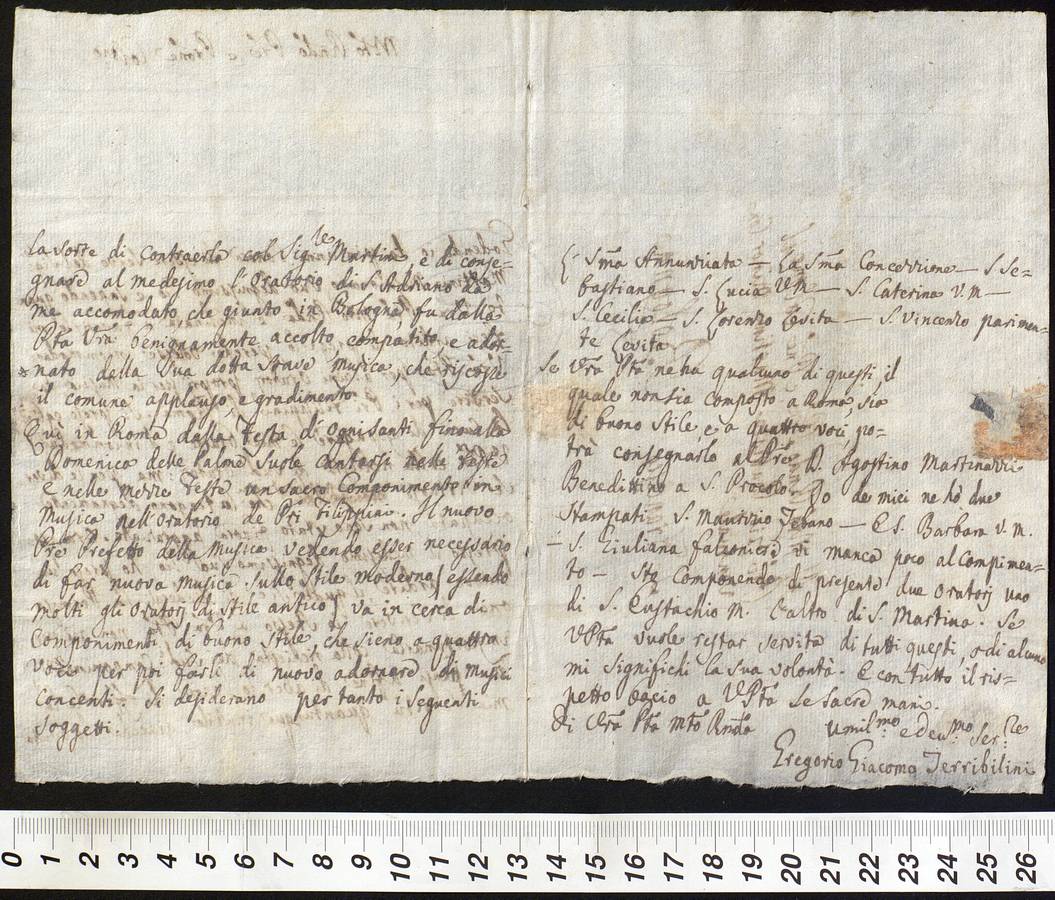 la sorte di contraerla col Sig.le Martini, e di conse=
gnare al medesimo l'Oratorio di S. Adriano da
me accomodato, che giunto in Bologna, fu dalla
Ptà Vrã benignamente accolto, compatito, e ador=
nato della Sua dotta soave Musica, che riscosse
il comune applauso, e gradimento.
Quì in Roma dalla Festa di Ognisanti fino alla
Domenica delle Palme suole cantarsi nelle Feste
e nelle mezze Feste un sacro Componimento in
Musica nell'Oratorio de PPi Filippini. Il nuovo
Pre Prefetto della Musica vedendo esser necessario
di far nuova Musica sullo Stile moderno (essendo
molti gli Oratorj di Stile antico) va in cerca di
Componimenti di buono Stile, che sieno a quattro
voci per poi farli di nuovo adornare di Musici
Concenti. Si desiderano per tanto i seguenti
soggetti.
Sṁa Annunziata — La Sṁa Concezzione — S. Se=
bastiano — S. Lucia V.M. — S. Caterina V.M. —
S. Cecilia — S. Lorenzo Levita — S. Vincenzo parimen=
te Levita
Se Vrã Ptà ne ha qualcuno di questi, il
quale non sia composto a Roma, sia
di buono Stile, e a quattro voci, po=
trà consegnarlo al Pre D. Agostino Martinazzi
Benedittino a S. Procolo. Io de miei ne hò due
Stampati S. Maurizio Tebano — E S. Barbara V.M.
— S. Giuliana Falconieri vi manca poco al Compimen=
to — Sto componendo di presente due Oratorj uno
di S. Eustachio M. l'altro di S. Martina. Se
VPtà vuole restar servita di tutti questi, o di alcuno
mi significhi la sua volontà. E con tutto il ris=
petto bacio a VPtà le sacre mani.
Di Vrã Ptà Mto Rnda
Umilmo e devmo Serre
Gregorio Giacomo Terribilini